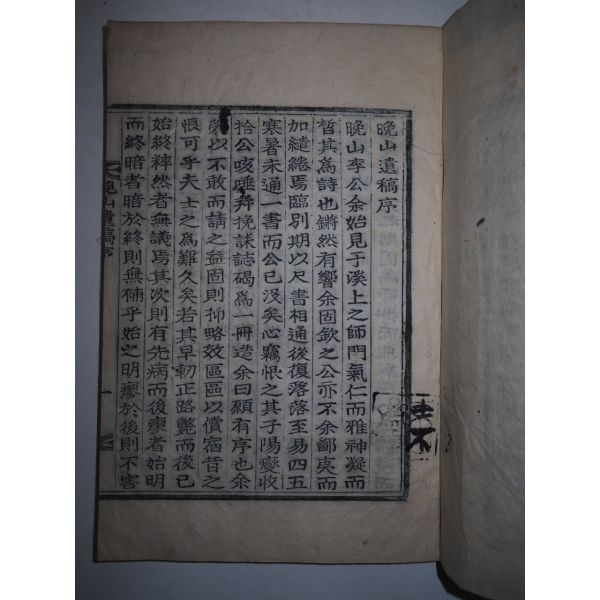 晚山遺稿序
晚山李公余始見于溪上之師門氣仁而雅神凝而
晳其爲詩也鏘然有響余固欽之公亦不余鄙夷而
加繾綣焉臨別期以尺書相通後復落落至易四五
寒暑未通一書而公已沒矣心竊恨之其子陽燮收
拾公咳唾幷挽誄誌碣爲一冊造余曰願有序也余
以不敢而請之益固則抑略效區區以償宿昔之
恨可乎夫士之爲難久矣若其早軔正路斃而後已
始終粹然者無議焉其次則有先病而後瘳者始明
而終暗者暗於終則無補乎始之明瘳於後則不害
晚山遺稿序
一